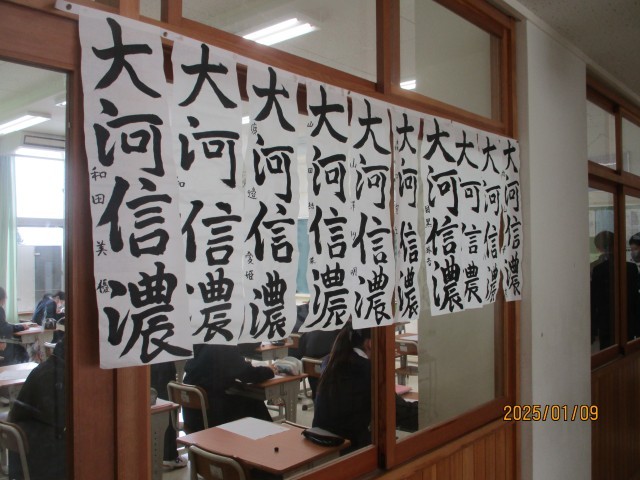 大河信濃
和田美優
大河信濃
大河信濃
大河信濃
大河信濃
大河信濃
大河信濃
大河信濃
大河信濃
大河信濃
2025/01/09